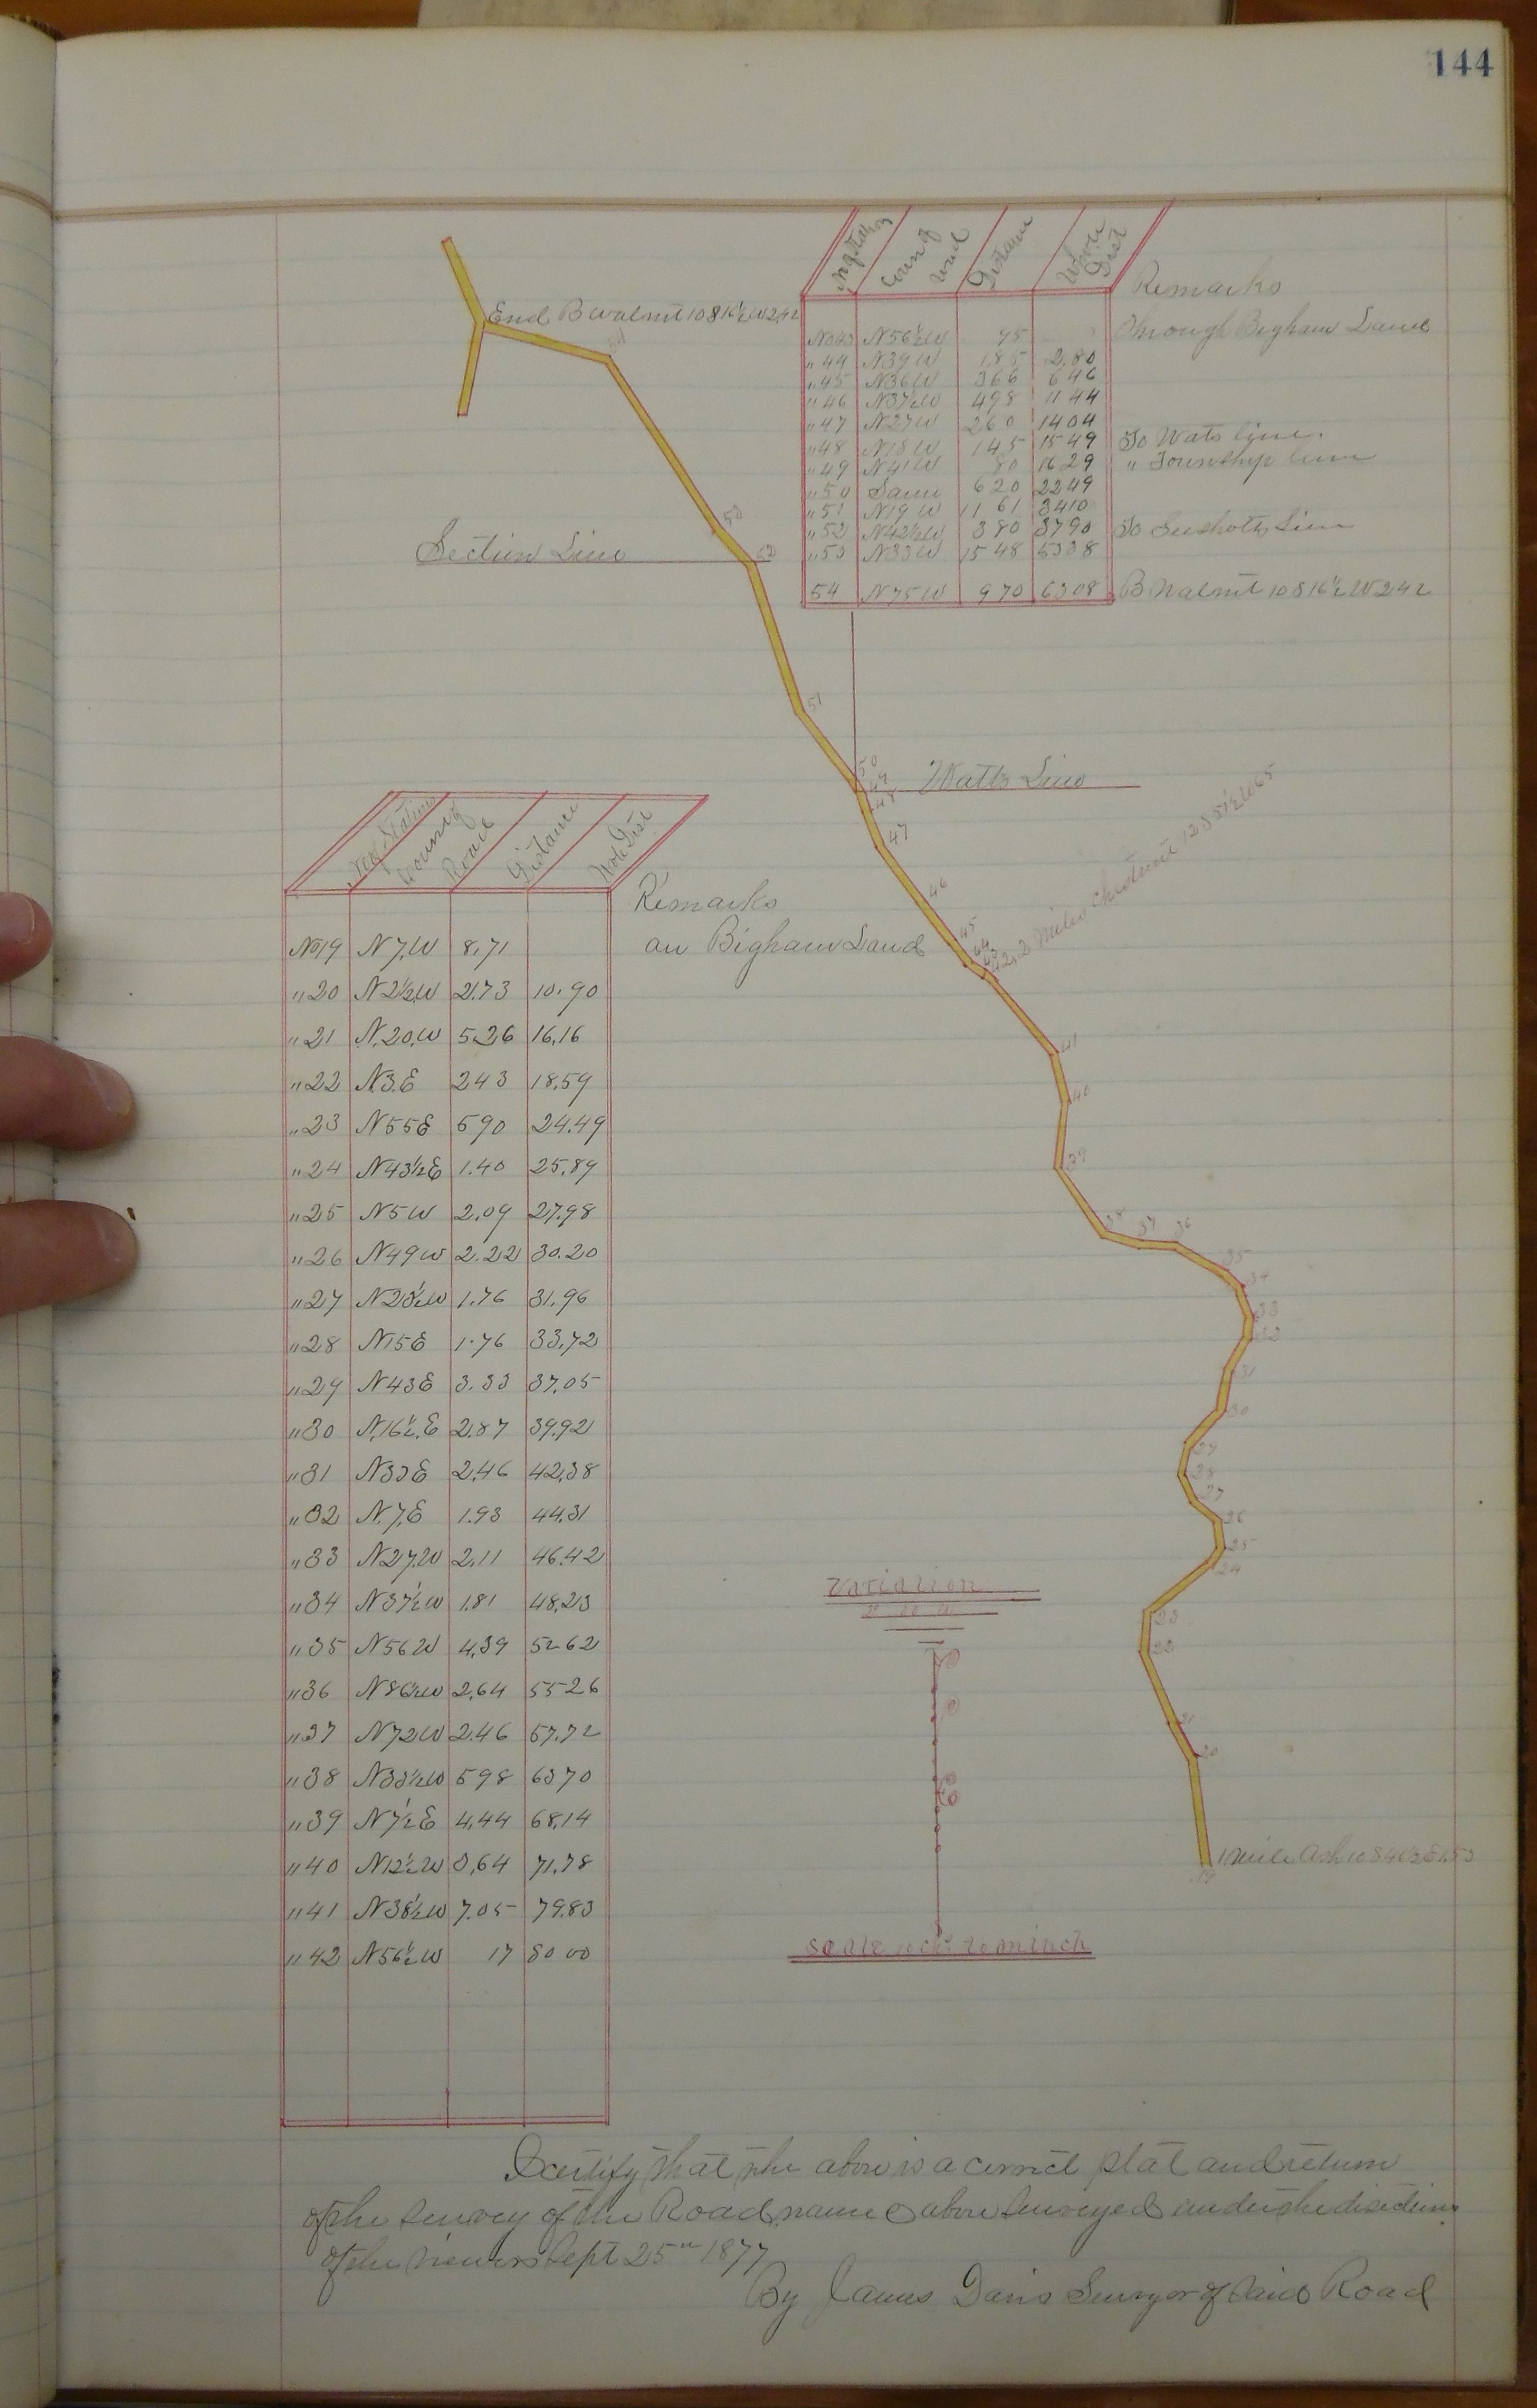 144
No of Station Course of Road Distance Whole Dist
Remarks
No 43 N56½W 75 Through Bigham Land
" 44 N39W 1.85 2.80
" 45 N36W 366 646
" 46 N37½W 498 1144
" 47 N27W 260 1404
" 48 N18W 145 1549 To Wats line.
" 49 N41W 80 1629 " Township line
" 50 Same 620 2249
" 51 N19W 11 61 3410
" 52 N42½W 380 3790 To Line
" 53 N33W 1548 5338
54 N75W 970 6308 B Walnut 10 S 16½ W 242
End B Walnut 10 S 16½ W 242
54
53
52
Section Line
51
50
49
48
Watts Line
47
46
45
44
43
42, 2 Miles Chestnut 12 S 51½ W 65
41
40
39
38 37 36
35
34
33
32
31
30
29
28
27
26
25
24
23
22
21
20
1 mile Ash 10 S 46½ E 1.53
19
No of Station Course of Road Distance Whole Dist
Remarks
No 19 N7.W 8.71 on Bigham Land
" 20 N2½W 2.73 10.90
" 21 N.20.W 5.26 16.16
" 22 N3.E 243 18.59
" 23 N55E 590 24.49
" 24 N43½E 1.40 25.89
" 25 N5W 2.09 27.98
" 26 N49W 2.22 30.20
" 27 N23½W 1.76 31.96
" 28 N15E 1.76 33.72
" 29 N43E 3.33 37.05
" 30 N.16½.E 2.87 39.92
" 31 N33E 2.46 42.38
" 32 N.7.E 1.93 44.31
" 33 N27.W 2.11 46.42
" 34 N37½W 1.81 48.23
" 35 N56W 4.39 52 62
" 36 N86½W 2.64 55 26
" 37 N72W 2.46 57.72
" 38 N33½W 598 6370
" 39 N7½E 4.44 68.14
" 40 N12½W 3.64 71.78
" 41 N38½W 7.05 79.83
" 42 N56½W 17 80 00
Variation
Scale 10 chs to an inch
I certify that the above is a correct plat and return
of the survey of the Road named above surveyed under the direction
of the viewers Sept 25th 1877
By James Davis Surveyor of said Road